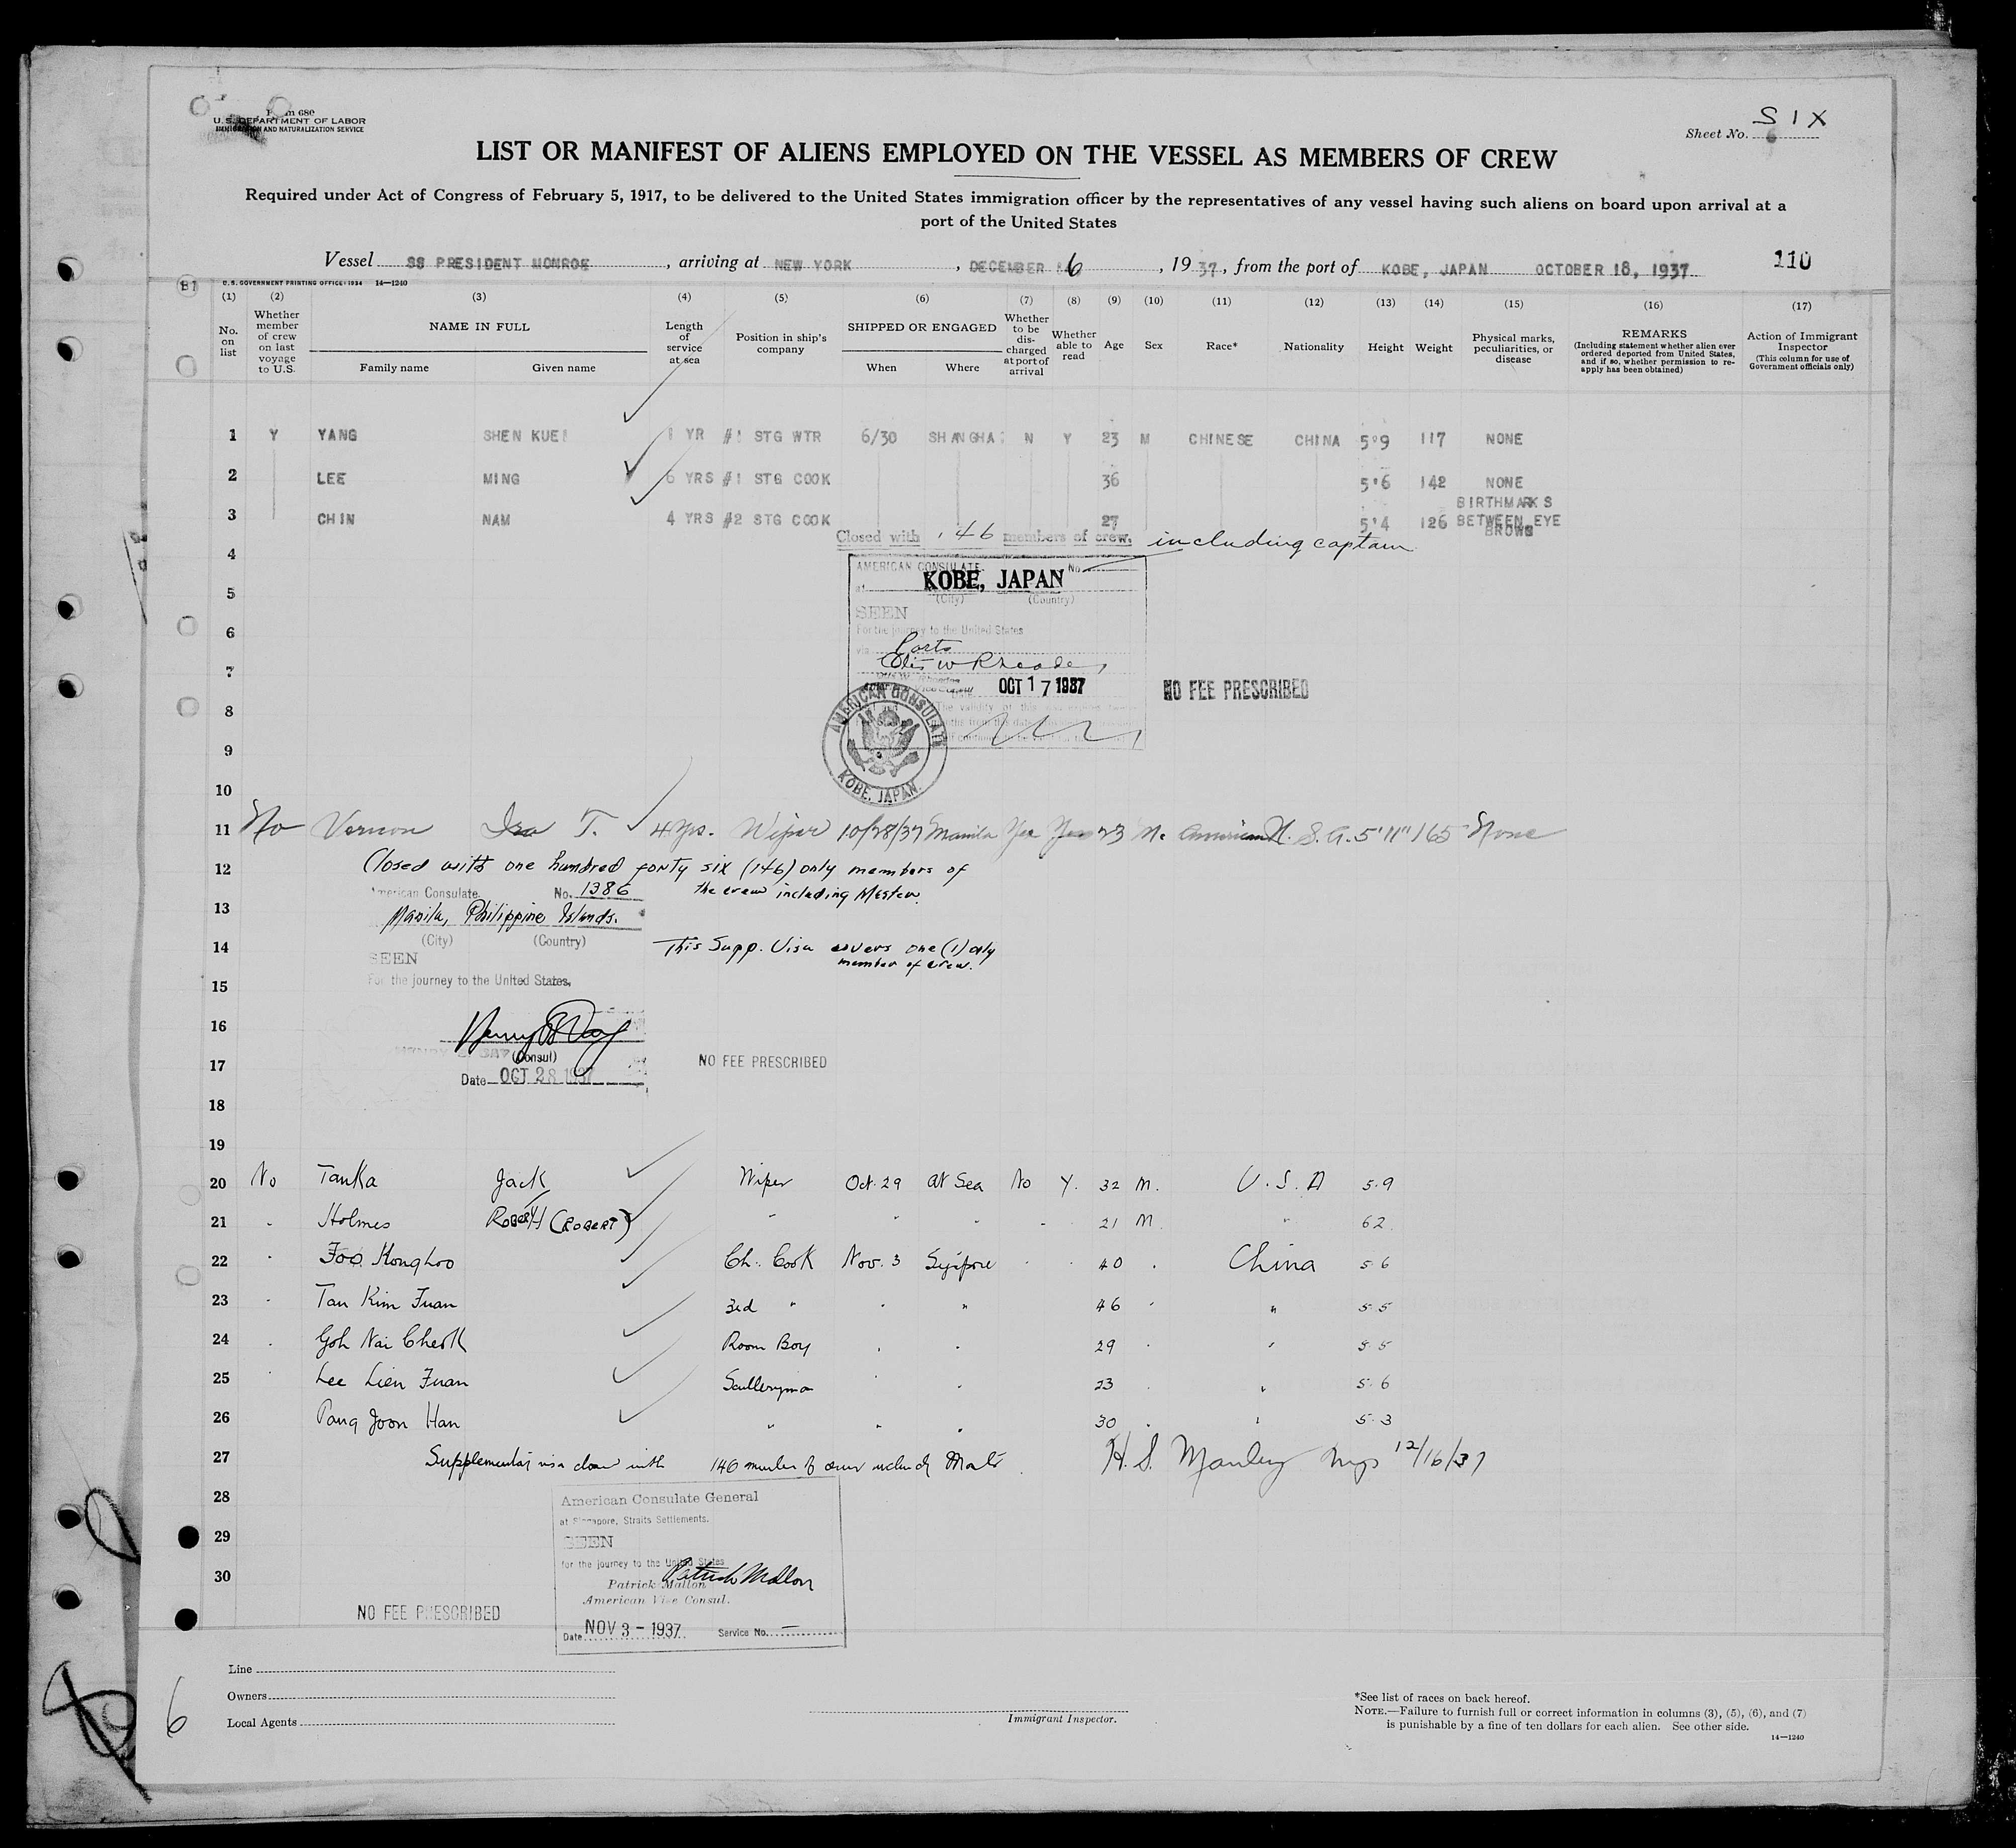 Form 680
U. S. DEPARTMENT OF LABOR
IMMIGRATION AND NATURALIZATION SERVICE
SIX
Sheet No. 6
LIST OR MANIFEST OF ALIENS EMPLOYED ON THE VESSEL AS MEMBERS OF CREW
Required under Act of Congress of February 5, 1917, to be delivered to the United States immigration officer by the representatives of any vessel having such aliens on board upon arrival at a
port of the United States
Vessel SS PRESIDENT MONROE, arriving at NEW YORK, DECEMBER 6, 1937, from the port of KOBE, JAPAN OCTOBER 18, 1937 110
B1 U. S. GOVERNMENT PRINTING OFFICE: 1934 14—1240
(1) (2) (3) (4) (5) (6) (7) (8) (9) (10) (11) (12) (13) (14) (15) (16) (17)
No. on list
Whether member of crew on last voyage to U.S.
NAME IN FULL
Family name Given name
Length of service at sea
Position in ship's company
SHIPPED OR ENGAGED
When Where
Whether to be discharged at port of arrival
Whether able to read
Age
Sex
Race*
Nationality
Height
Weight
Physical marks, peculiarities, or disease
REMARKS
(Including statement whether alien ever ordered deported from United States, and if so, whether permission to re-apply has been obtained)
Action of Immigrant Inspector
(This column for use of Government officials only)
1 Y YANG SHEN KUEI 1 YR #1 STG WTR 6/30 SHANGHAI N Y 23 M CHINESE CHINA 5'9 117 NONE
2 LEE MING 6 YRS #1 STG COOK 36 5'6 142 NONE
3 CHIN NAM 4 YRS #2 STG COOK 27 5'4 126 BIRTHMARKS BETWEEN EYE BROWS
Closed with 146 members of crew. including captain
4
AMERICAN CONSULATE No.
at KOBE, JAPAN
5
(City) (Country)
SEEN
6
For the journey to the United States
via Ports
7
OCT 17 1937
NO FEE PRESCRIBED
8
The validity of this
9
AMERICAN CONSULATE
KOBE, JAPAN.
10
11 No Vernon Ira T. 4 Yrs. Wiper 10/28/37 Manila Yes Yes 23 M. American U. S. A. 5'11" 165 None
12 Closed with one hundred forty six (146) only members of
the crew including Master.
American Consulate No. 1386
13 Manila, Philippine Islands.
(City) (Country)
14 This Supp. Visa covers one (1) only
member of crew.
SEEN
For the journey to the United States.
15
16
(Consul)
17 NO FEE PRESCRIBED
Date OCT 28 1937
18
19
20 No Tanka Jack Wiper Oct. 29 At Sea No Y. 32 M. U. S. A 5.9
21 " Holmes Robert H (ROBERT) " " " " 21 M. " 62
22 " Foo Konghoo Ch. Cook Nov. 3 " 40 " China 5 6
23 " Tan Kim Juan 3rd " " " 46 " " 5 5
24 " Goh Nai Cheok Room Boy " " 29 " " 5 5
25 " Lee Lien Juan Sculleryman " " 23 " " 5. 6
26 Pang Joon Han " " " 30 " " 5. 3
27 Supplementary visa closed with 146 members of crew H. S. Manley 12/16/37
28
American Consulate General
at Singapore, Straits Settlements.
29
SEEN
for the journey to the United States
30
Patrick Mallon
Patrick Mallon
American Vice Consul.
NO FEE PRESCRIBED
Date NOV 3 - 1937 Service No. —
Line
Owners
Local Agents
Immigrant Inspector.
*See list of races on back hereof.
NOTE.—Failure to furnish full or correct information in columns (3), (5), (6), and (7)
is punishable by a fine of ten dollars for each alien. See other side.
14—1240
6